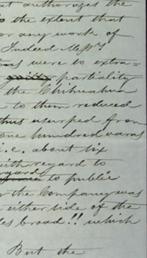 at authorizes the
to the extent that
or any work of
Indeed Mess
were to extra-
partiality
the Chihuahua
to them reduced
thus usurped from
one hundred varas
i.e. about six
with regard to
regard
to public
the Company was
either side of the
broad!! which
But the